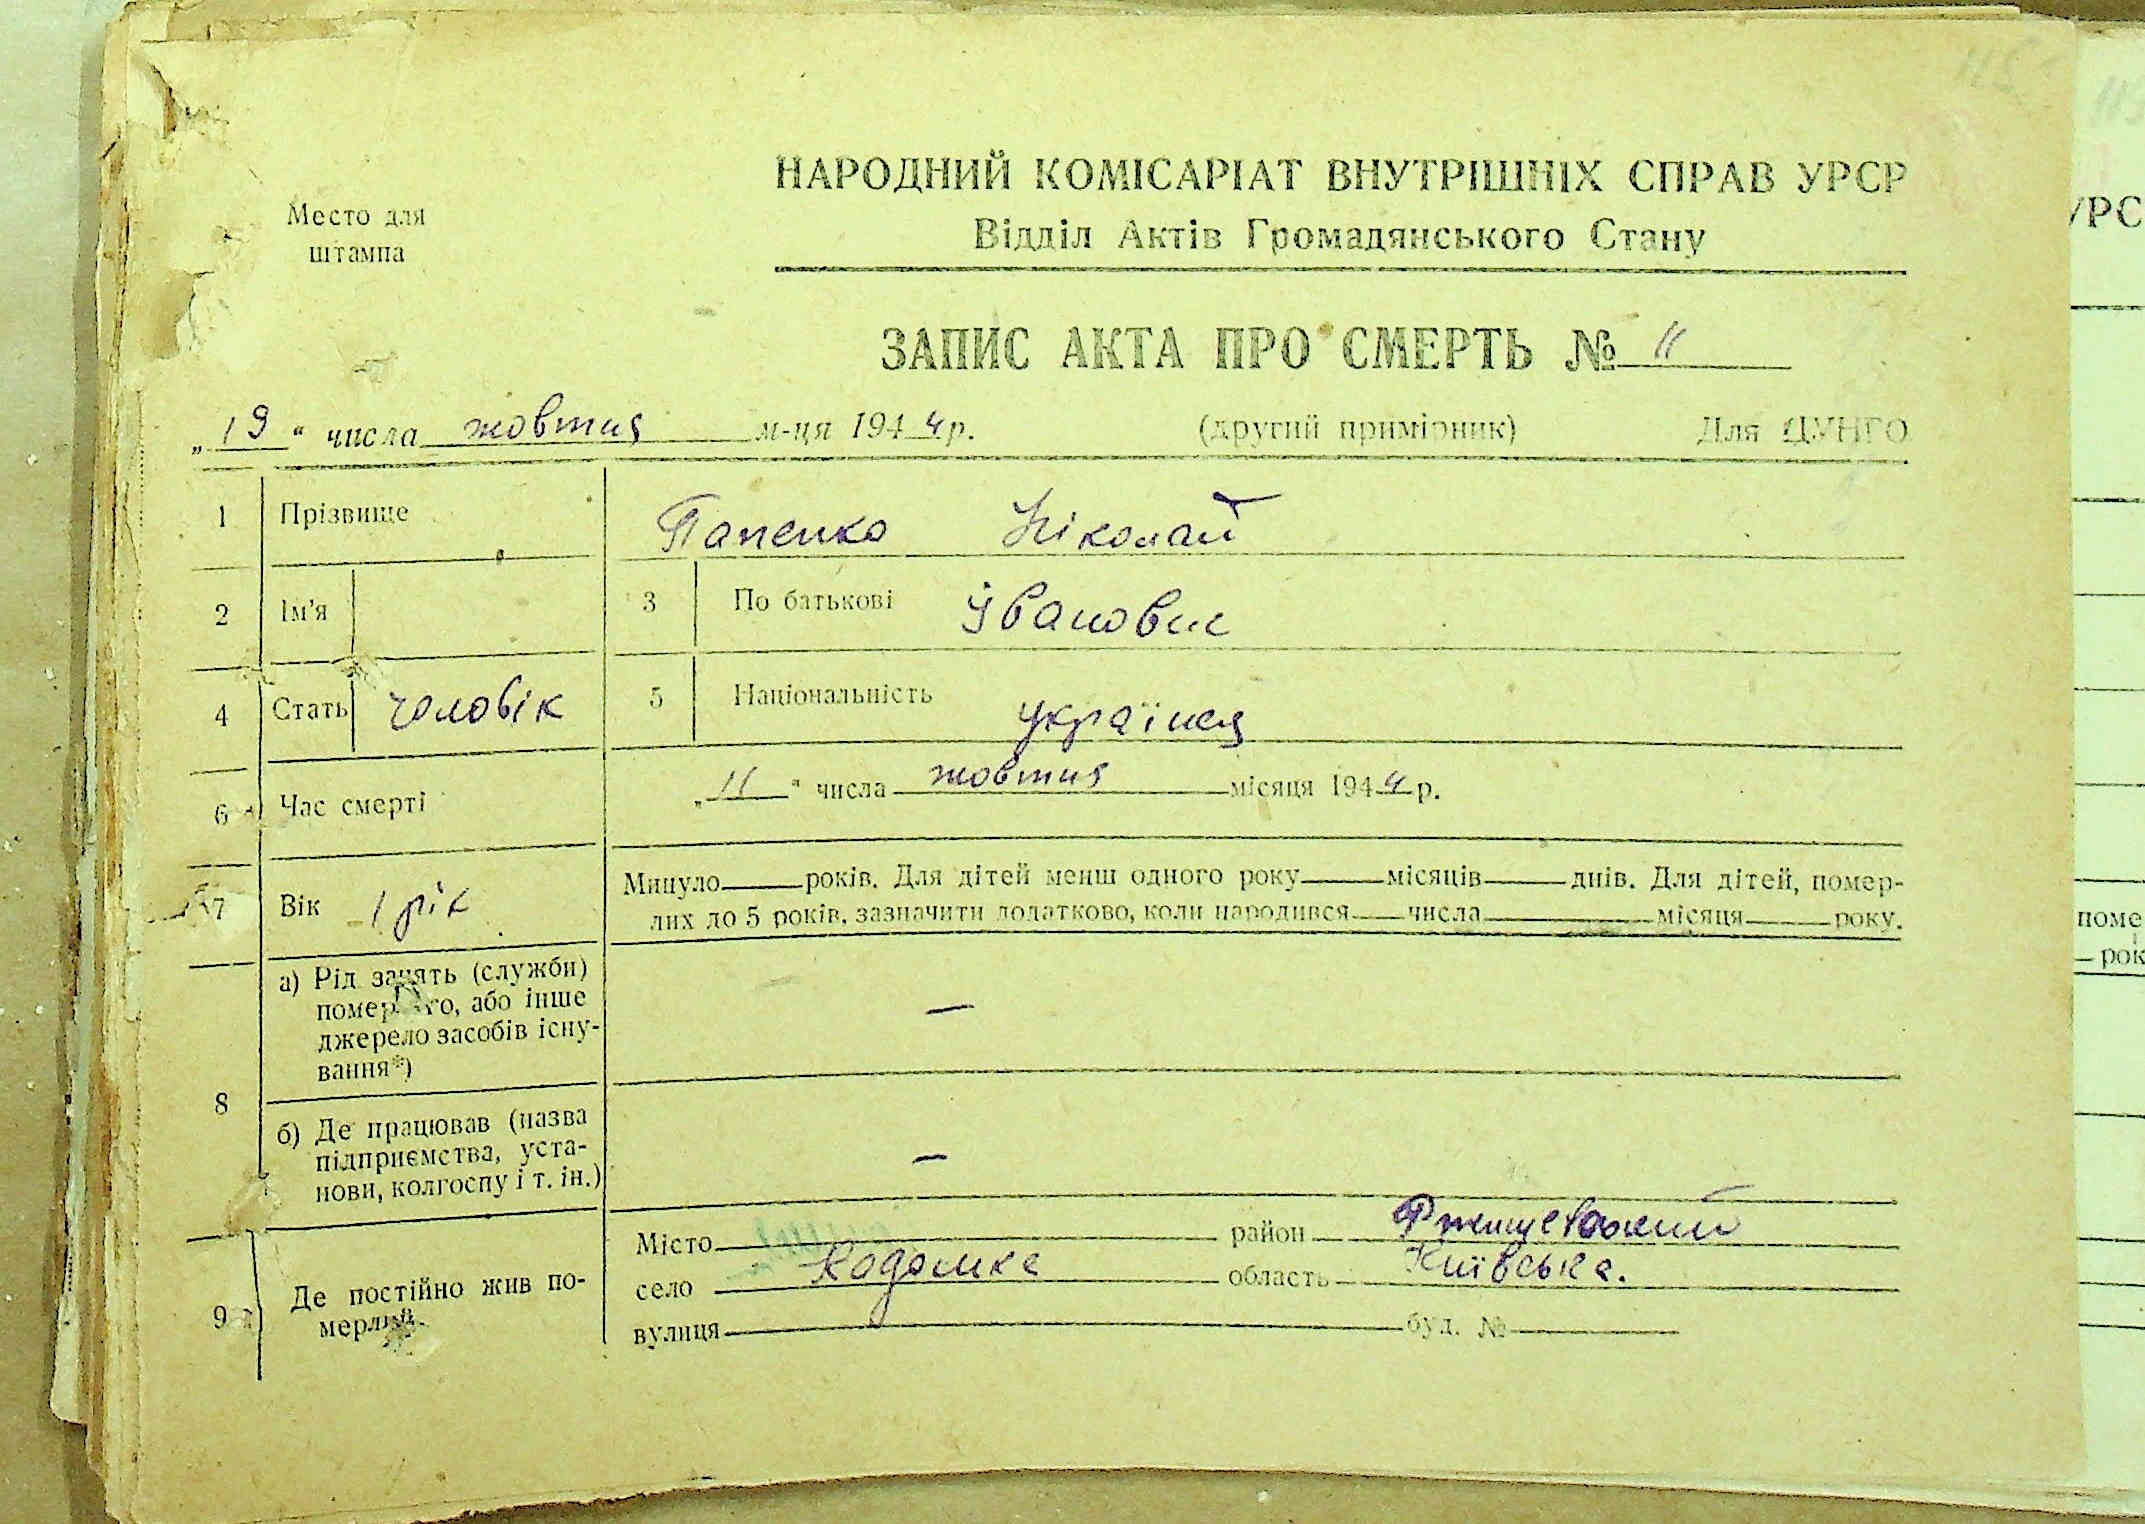 115
Место для
штампа
НАРОДНИЙ КОМІСАРІАТ ВНУТРІШНІХ СПРАВ УРСР
Відділ Актів Громадянського Стану
ЗАПИС АКТА ПРО СМЕРТЬ № 11
„19“ числа жовтня м-ця 1944 р. (другий примірник) Для ЦУНГО
1 Прізвище Папенко Ніколай
2 Ім’я 3 По батькові Іванович
4 Стать чоловік 5 Національність українец
6 Час смерті „11“ числа жовтня місяця 1944 р.
7 Вік 1 рік Минуло років. Для дітей менш одного року місяців днів. Для дітей, помер-
лих до 5 років, зазначити додатково, коли народився числа місяця року.
8 а) Рід занять (служби)
померлого, або інше
джерело засобів існу-
вання*) —
б) Де працював (назва
підприємства, уста-
нови, колгоспу і т. ін.) —
9 Де постійно жив по-
мерлий.
Місто район Ржищевский
село Кадомка область Київська.
вулиця буд. №
УРС
поме
рок